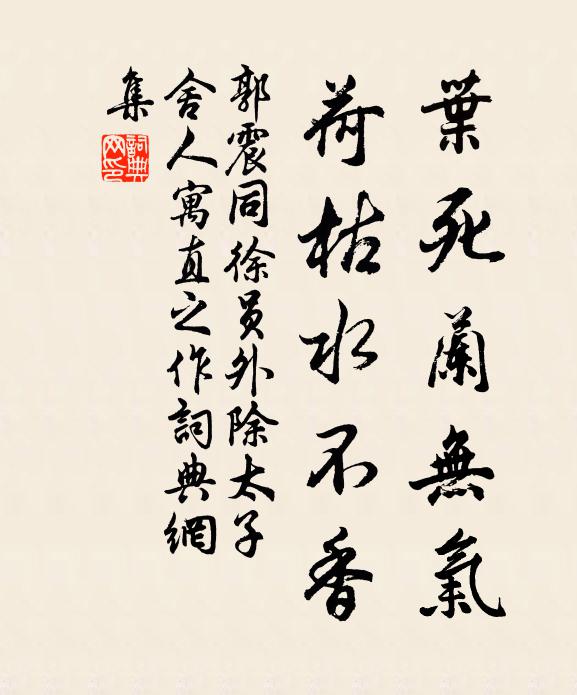 葉死蘭無氣
荷枯水不香
郭震同徐員外除太子
舍人寓直之作詞典網
集
詞典網印